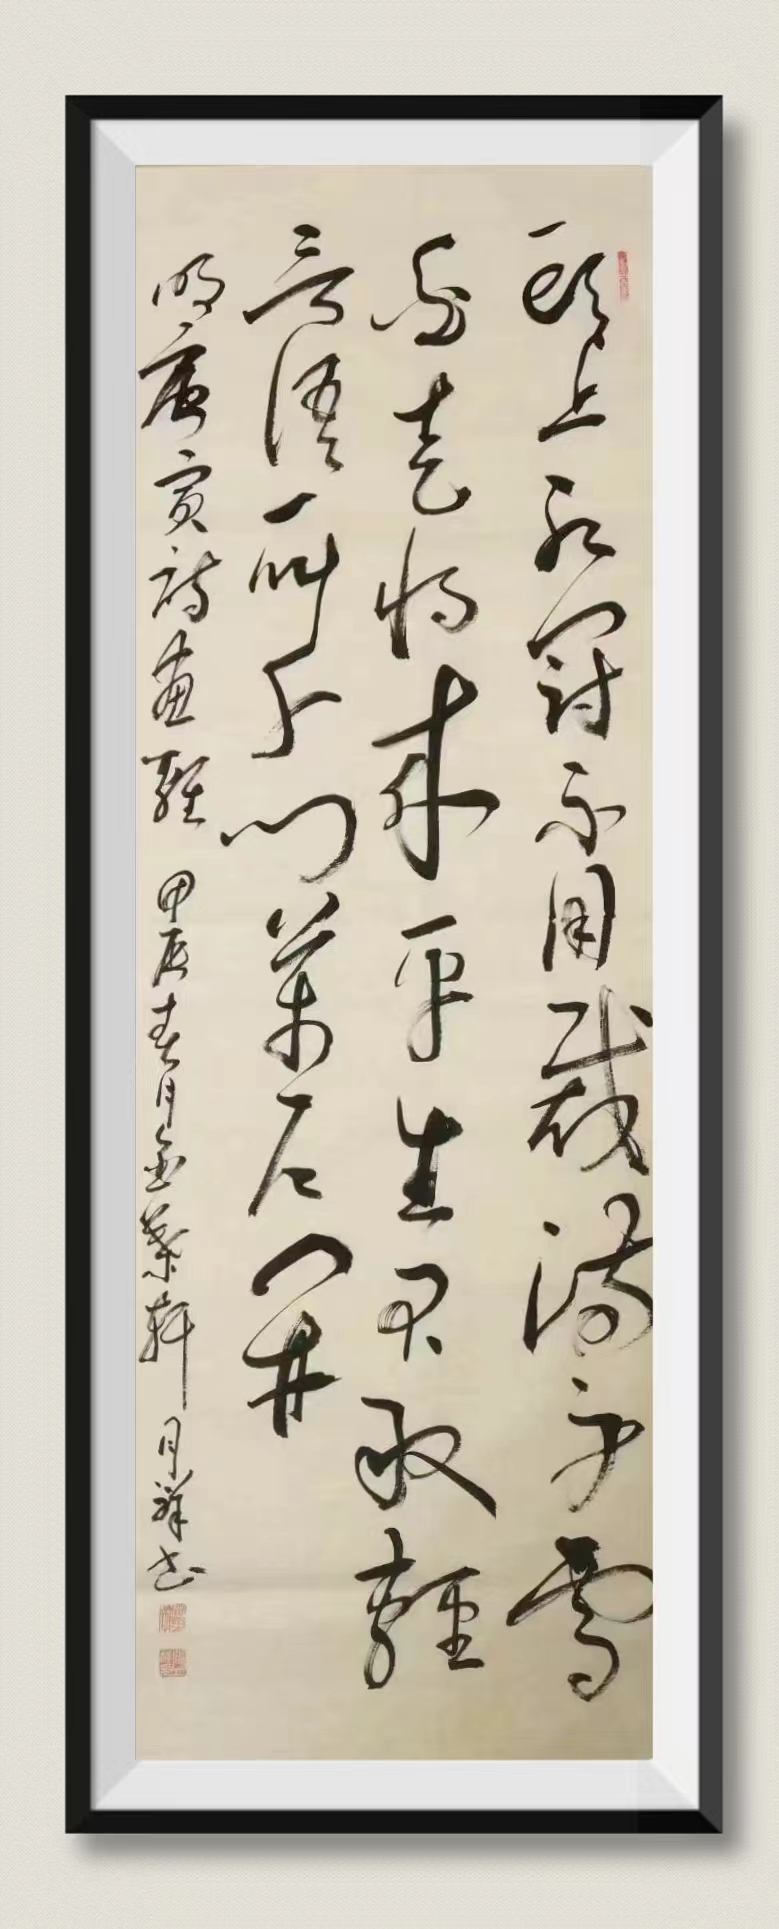 頭上紅冠不用裁滿身雪
白走將来平生不敢輕
言語一叫千門萬户開
明唐寅詩畫雞 甲辰春月金葉軒 月祥书